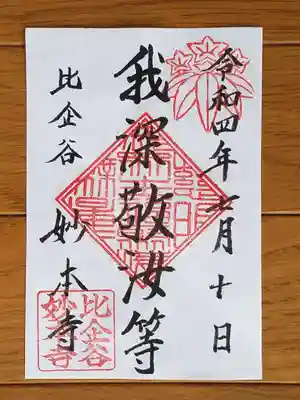 令和四年七月十日
我深敬汝等
比企谷 妙本寺
比企谷
妙本寺